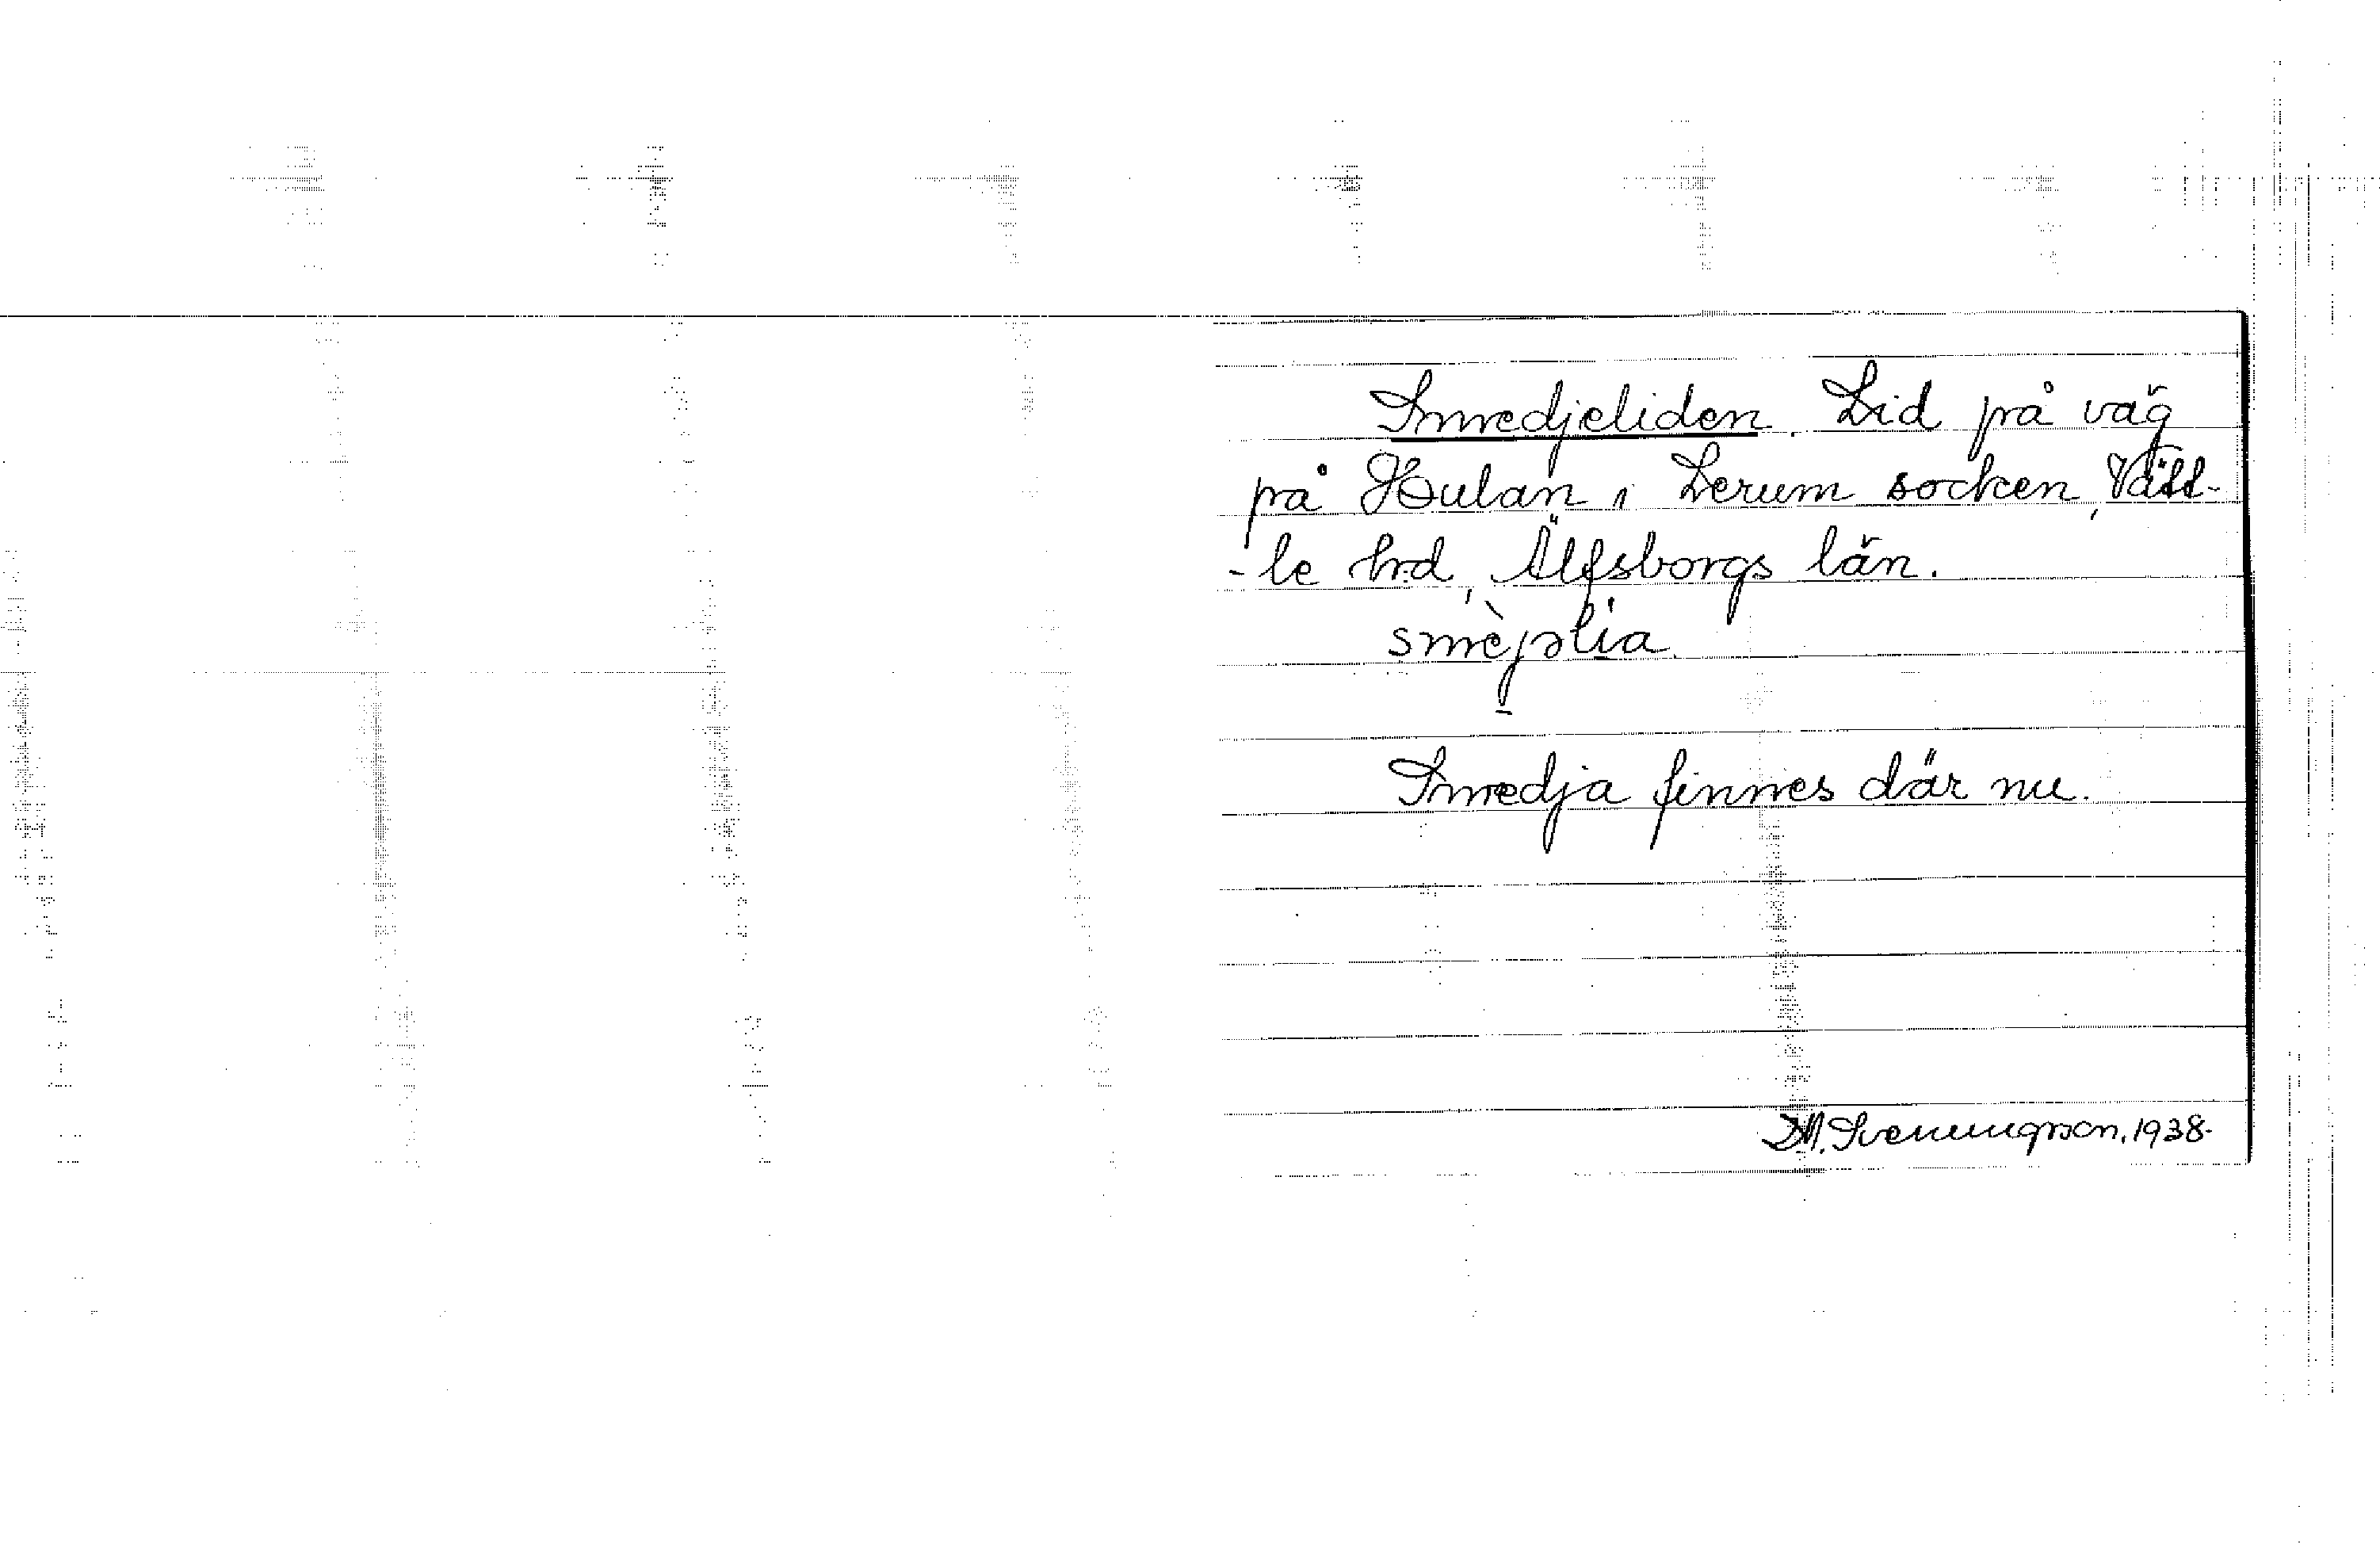 Smedjeliden. Lid på väg
på Hulan i Lerum socken, Vätt-
-le hrd, Älfsborgs län.
smèjəlia.
Smedja finnes där nu.
M. Svenungsson, 1938.